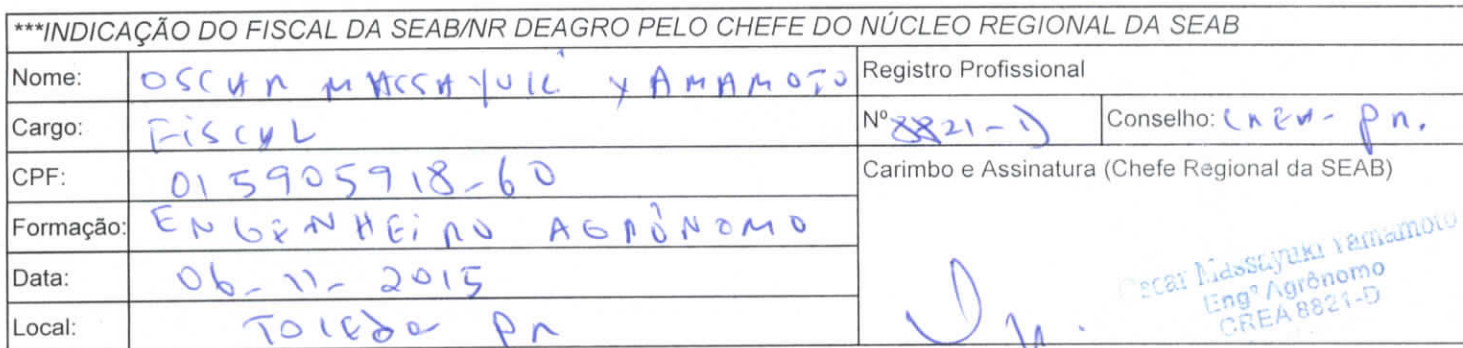 ***INDICAÇÃO DO FISCAL DA SEAB/NR DEAGRO PELO CHEFE DO NÚCLEO REGIONAL DA SEAB
Nome: OSCAR MASSAYUKI YAMAMOTO Registro Profissional
Cargo: FiSCAL Nº 8821-D Conselho: CREA-PR.
CPF: 015905918-60 Carimbo e Assinatura (Chefe Regional da SEAB)
Formação: ENGENHEiRO AGRÔNOMO
Data: 06-11-2015
Local: TOLEDO PR
Oscar Massayuki Yamamoto
Engº Agrônomo
CREA 8821-D